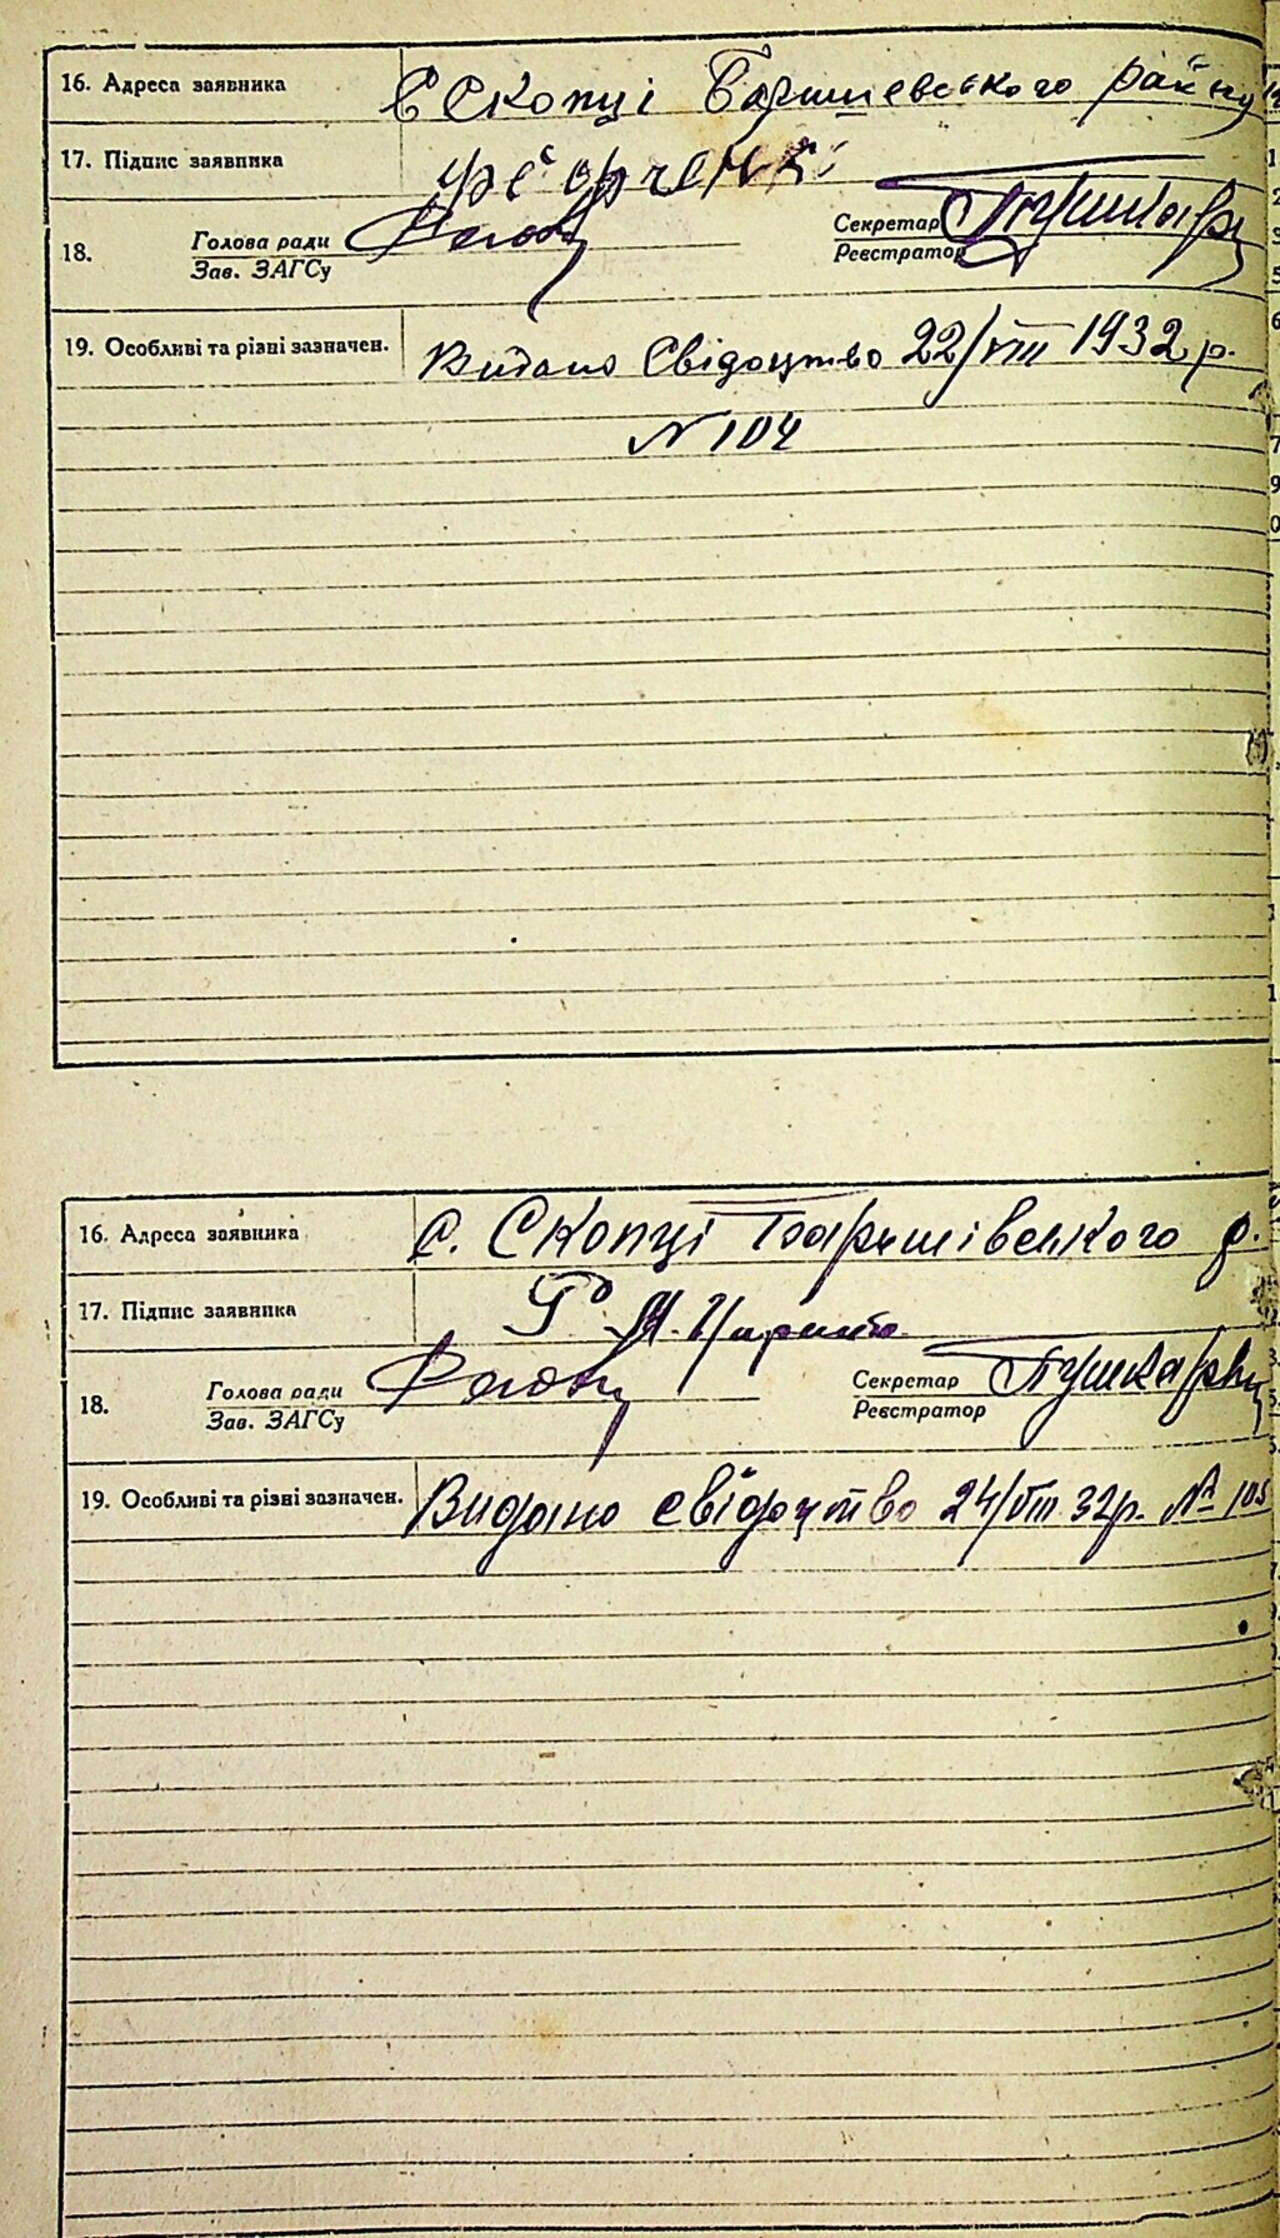 16. Адреса заявника С Скопці Баришевського району
17. Підпис заявника
18. Голова ради Секретар
Зав. ЗАГСу Реєстратор
19. Особливі та різні зазначен. Видано Свідоцтво 22/VIII 1932 р.
N 104
16. Адреса заявника с. Скопці Баришівського р.
17. Підпис заявника
18. Голова ради Секретар
Зав. ЗАГСу Реєстратор
19. Особливі та різні зазначен. Видано свідоцтво 24/VIII 32р. № 105